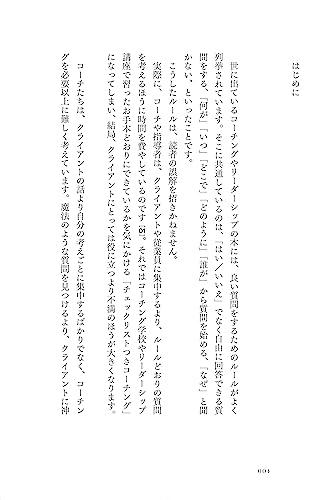 はじめに
世に出ているコーチングやリーダーシップの本には、良い質問をするためのルールがよく
列挙されています。そこに共通しているのは、「はい／いいえ」でなく自由に回答できる質
問をする、「何が」「いつ」「どこで」「どのように」「誰が」から質問を始める、「なぜ」と聞
かない、といったことです。
こうしたルールは、読者の誤解を招きかねません。
実際に、コーチや指導者は、クライアントや従業員に集中するより、ルールどおりの質問
を考えるほうに時間を費やしているのです
それではコーチング学校やリーダーシップ
講座で習ったお手本どおりにできているかを気にかける「チェックリストつきコーチング」
になってしまい、結局、クライアントにとっては役に立つより不満のほうが大きくなります。
コーチたちは、クライアントの話より自分の考えごとに集中するばかりでなく、コーチン
グを必要以上に難しく考えています。魔法のような質問を見つけるより、クライアントに沖
001